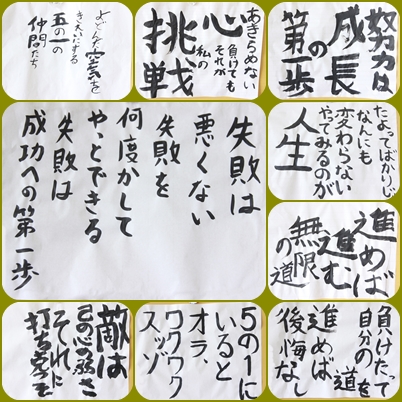 よどんだ空気を
きれいにする
五の一の
仲間たち
あきらめない
心
負けても
それが
私の
挑戦
努力は
成長
の
第一歩
失敗は
悪くない
失敗を
何度かして
やっとできる
失敗は
成功への第一歩
たよってばかりじ
なんにも
変わらない
やってみるのが
人生
進めば
進む
無限
の道
敵は
己の心の弱さ
それに
5の1に
いると
オラ、
ワクワク
スッゾ
負けたって
自分の道を
進めば
後悔なし